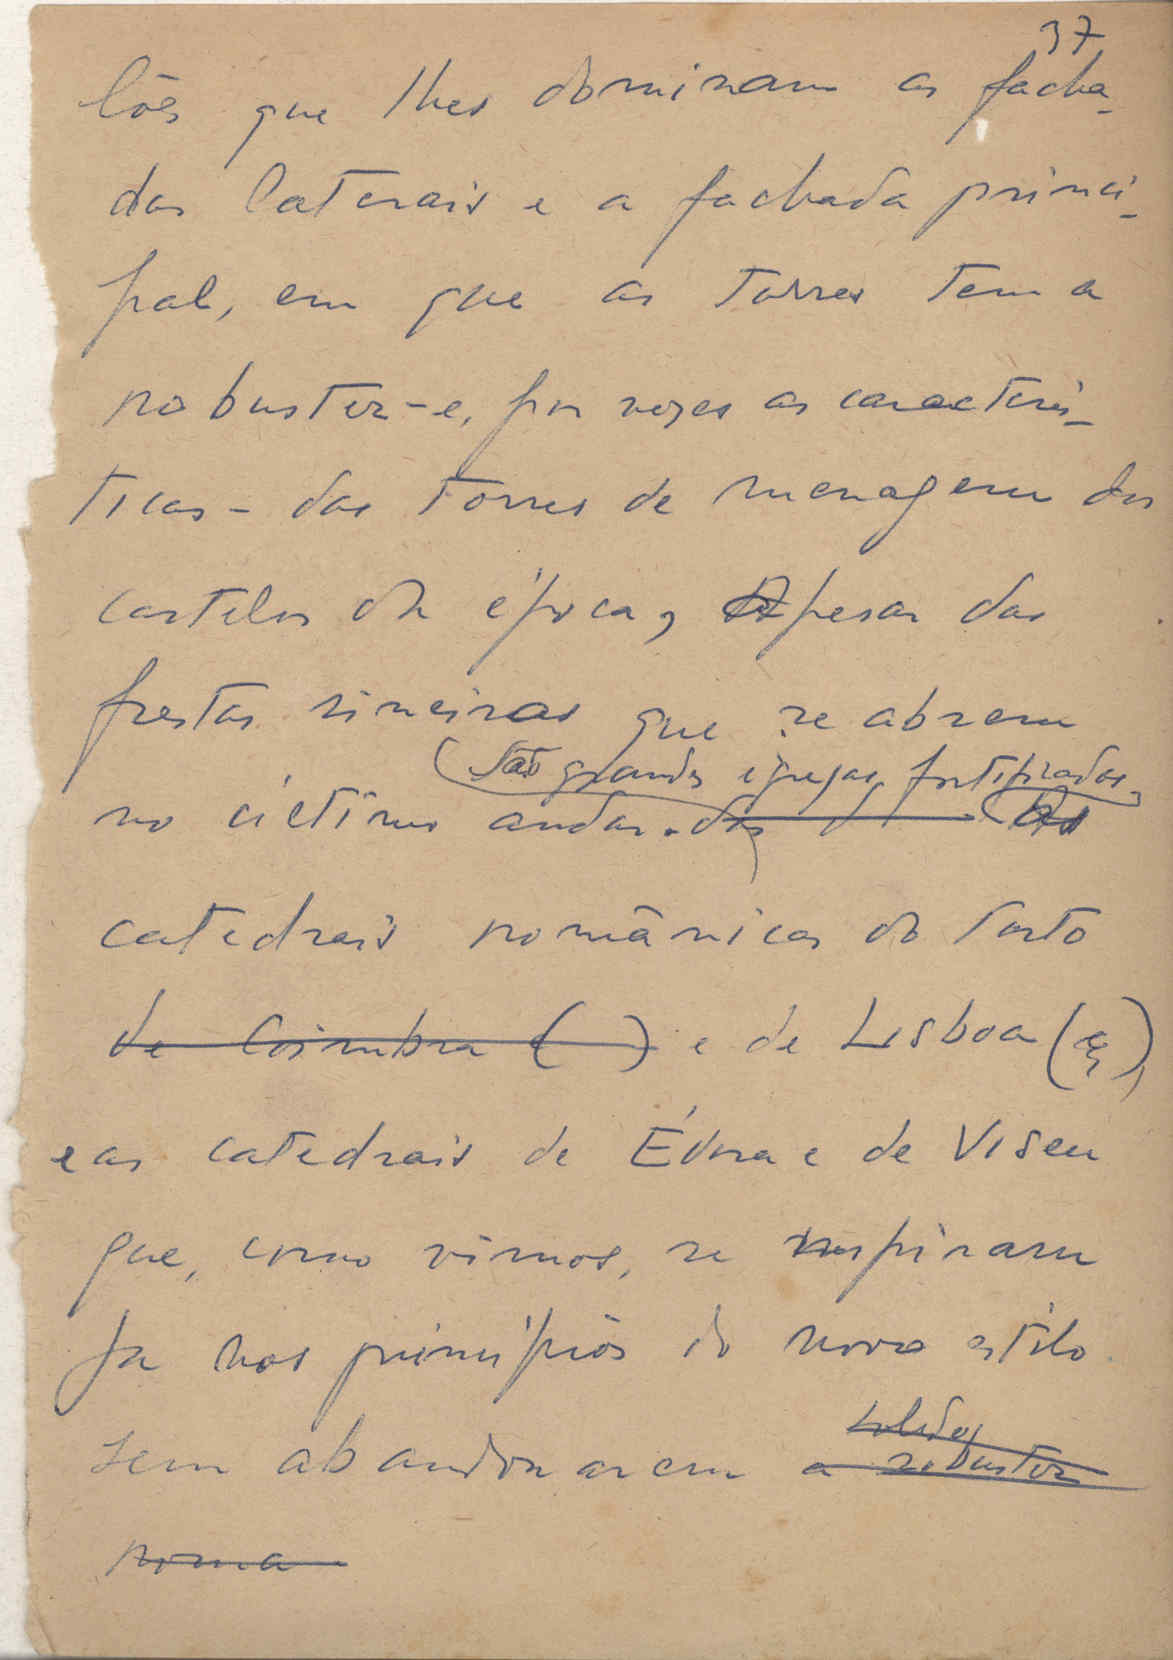 37
lões que lhes dominam as facha-
das laterais e a fachada princi-
pal, em que as torres tem a
robustez - e, por vezes as caracterís-
ticas - das torres de menagem dos
castelos da época, Apesar das
frestas sineiras que se abrem
São grandes igrejas fortificadas,
no último andar. das As
catedrais românicas do Porto
de Coimbra ( ) e de Lisboa ( ),
e as catedrais de Évora e de Viseu
que, como vimos, se inspiram
já nos princípios do novo estilo
solidez
sem abandonarem a robustez
roma